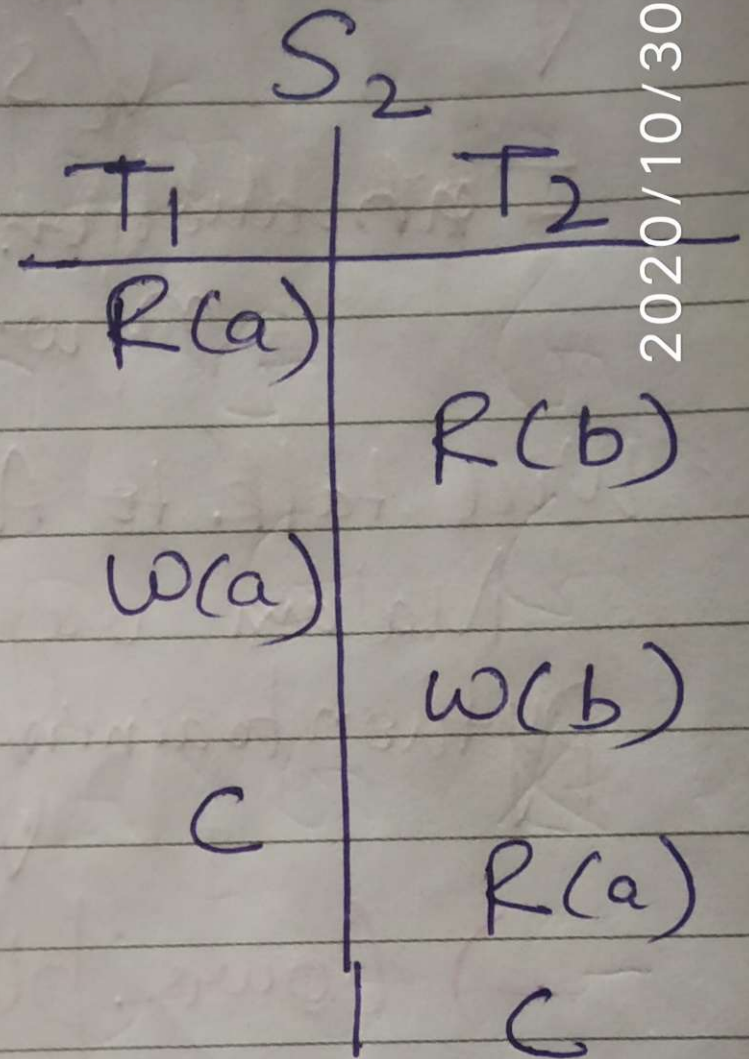 S2
T1 T2
R(a)
R(b)
W(a)
W(b)
C
R(a)
C
2020/10/30